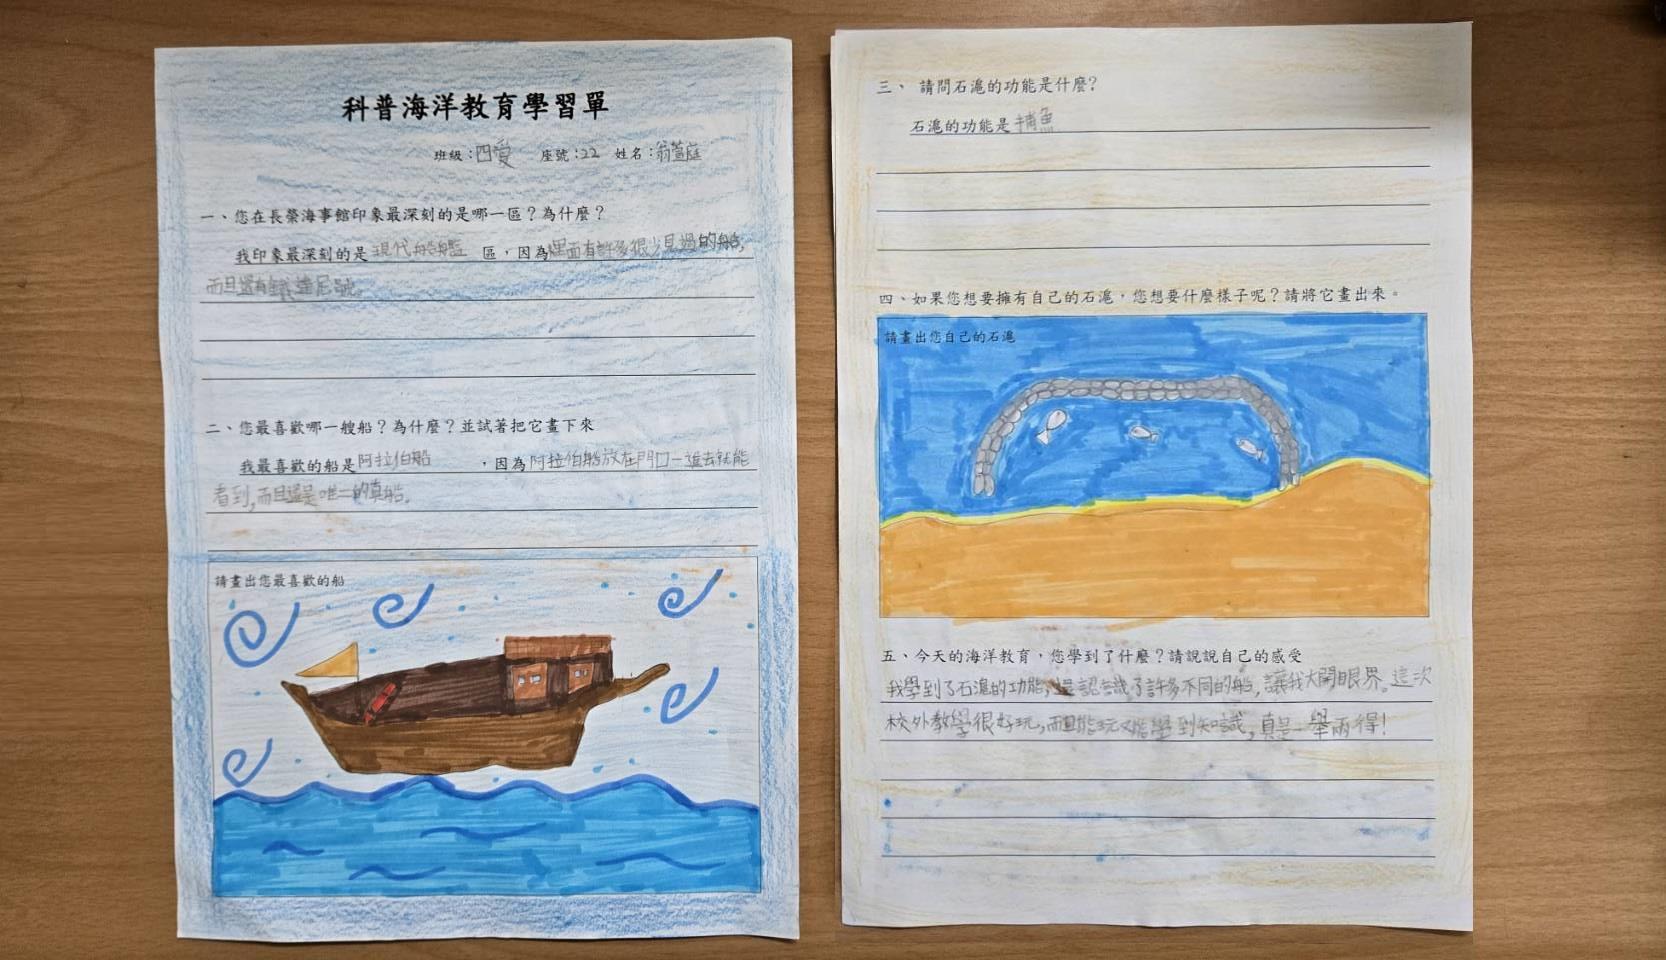 科普海洋教育學習單
班級：四愛 座號：22 姓名：翁萱庭
一、您在長榮海事館印象最深刻的是哪一區？為什麼？
我印象最深刻的是 現代船艦 區，因為裡面有許多很少見過的船，
而且還有鐵達尼號。
二、您最喜歡哪一艘船？為什麼？並試著把它畫下來
我最喜歡的船是阿拉伯船 ，因為阿拉伯船放在門口一進去就能
看到，而且還是唯一的真船。
請畫出您最喜歡的船
三、 請問石滬的功能是什麼？
石滬的功能是捕魚
四、如果您想要擁有自己的石滬，您想要什麼樣子呢？請將它畫出來。
請畫出您自己的石滬
五、今天的海洋教育，您學到了什麼？請說說自己的感受
我學到了石滬的功能，還認識了許多不同的船，讓我大開眼界。這次
校外教學很好玩，而且能玩又能學到知識，真是一舉兩得！